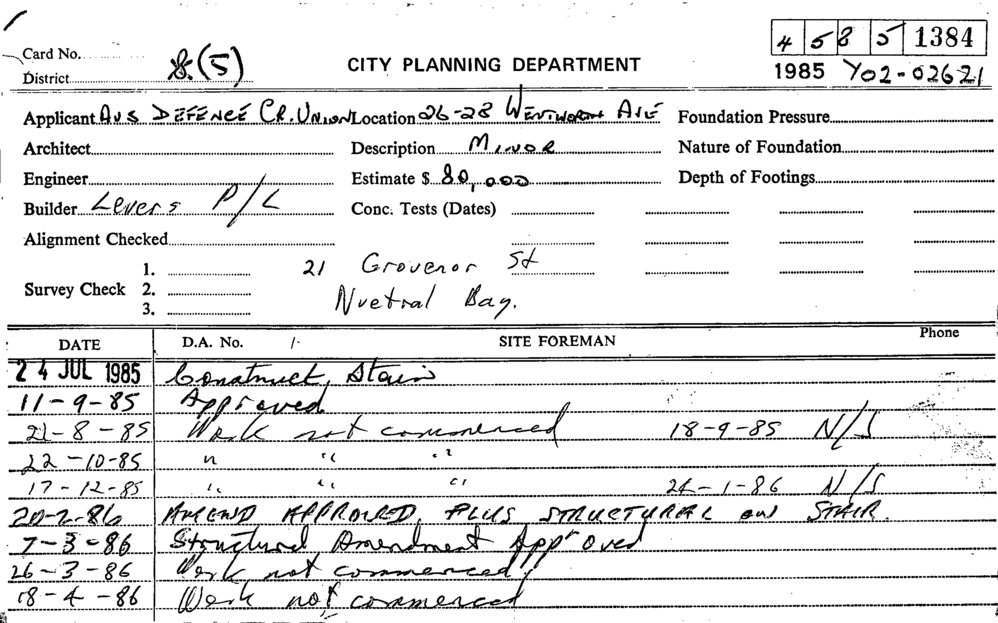 4 5 8 5 1384
Card No.
District 8(5)
CITY PLANNING DEPARTMENT
1985 Y02-02621
Applicant AUS DEFENCE CR. UNION Location 26-28 WENTWORTH AVE Foundation Pressure
Architect Description MINOR Nature of Foundation
Engineer Estimate $ 80,000 Depth of Footings
Builder Levers P/L Conc. Tests (Dates)
Alignment Checked
1. 21 Grovenor St
Survey Check 2. Nuetral Bay.
3.
DATE D.A. No. SITE FOREMAN Phone
24 JUL 1985 Construct Stair
11-9-85 Approved
21-8-85 Work not commenced 18-9-85 N/S
22-10-85 " " "
17-12-85 " " " 24-1-86 N/S
20-2-86 AMEND APPROVED, PLUS STRUCTURAL on STAIR.
7-3-86 Structural Amendment Approved
26-3-86 Work not commenced
18-4-86 Work not commenced